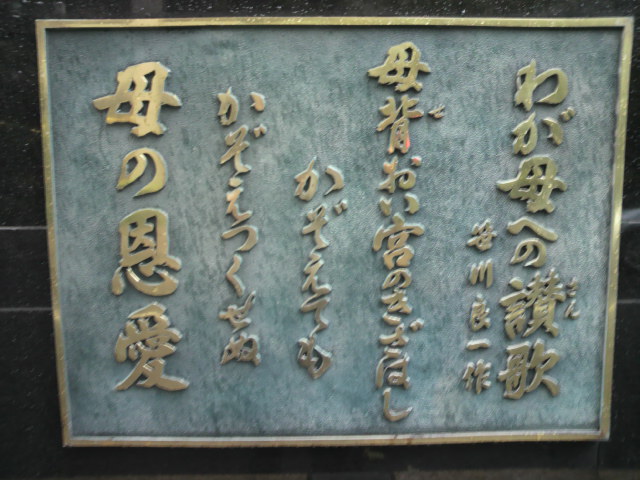 わが母への讃歌
さん
笹川良一作
母背おい宮のきざはし
せ
かぞえても
かぞえつくせぬ
母の恩愛